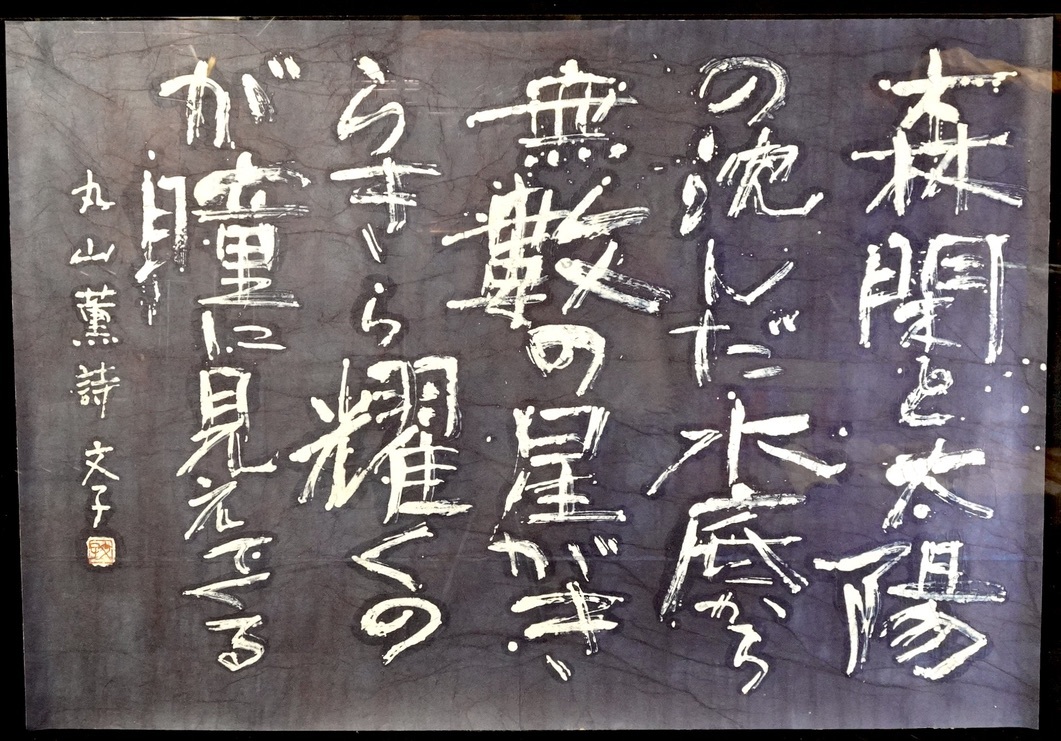 森閑と太陽
の沈んだ水底から
無數の星がき
らきら耀くの
が瞳に見えてくる
丸山薫詩 文子